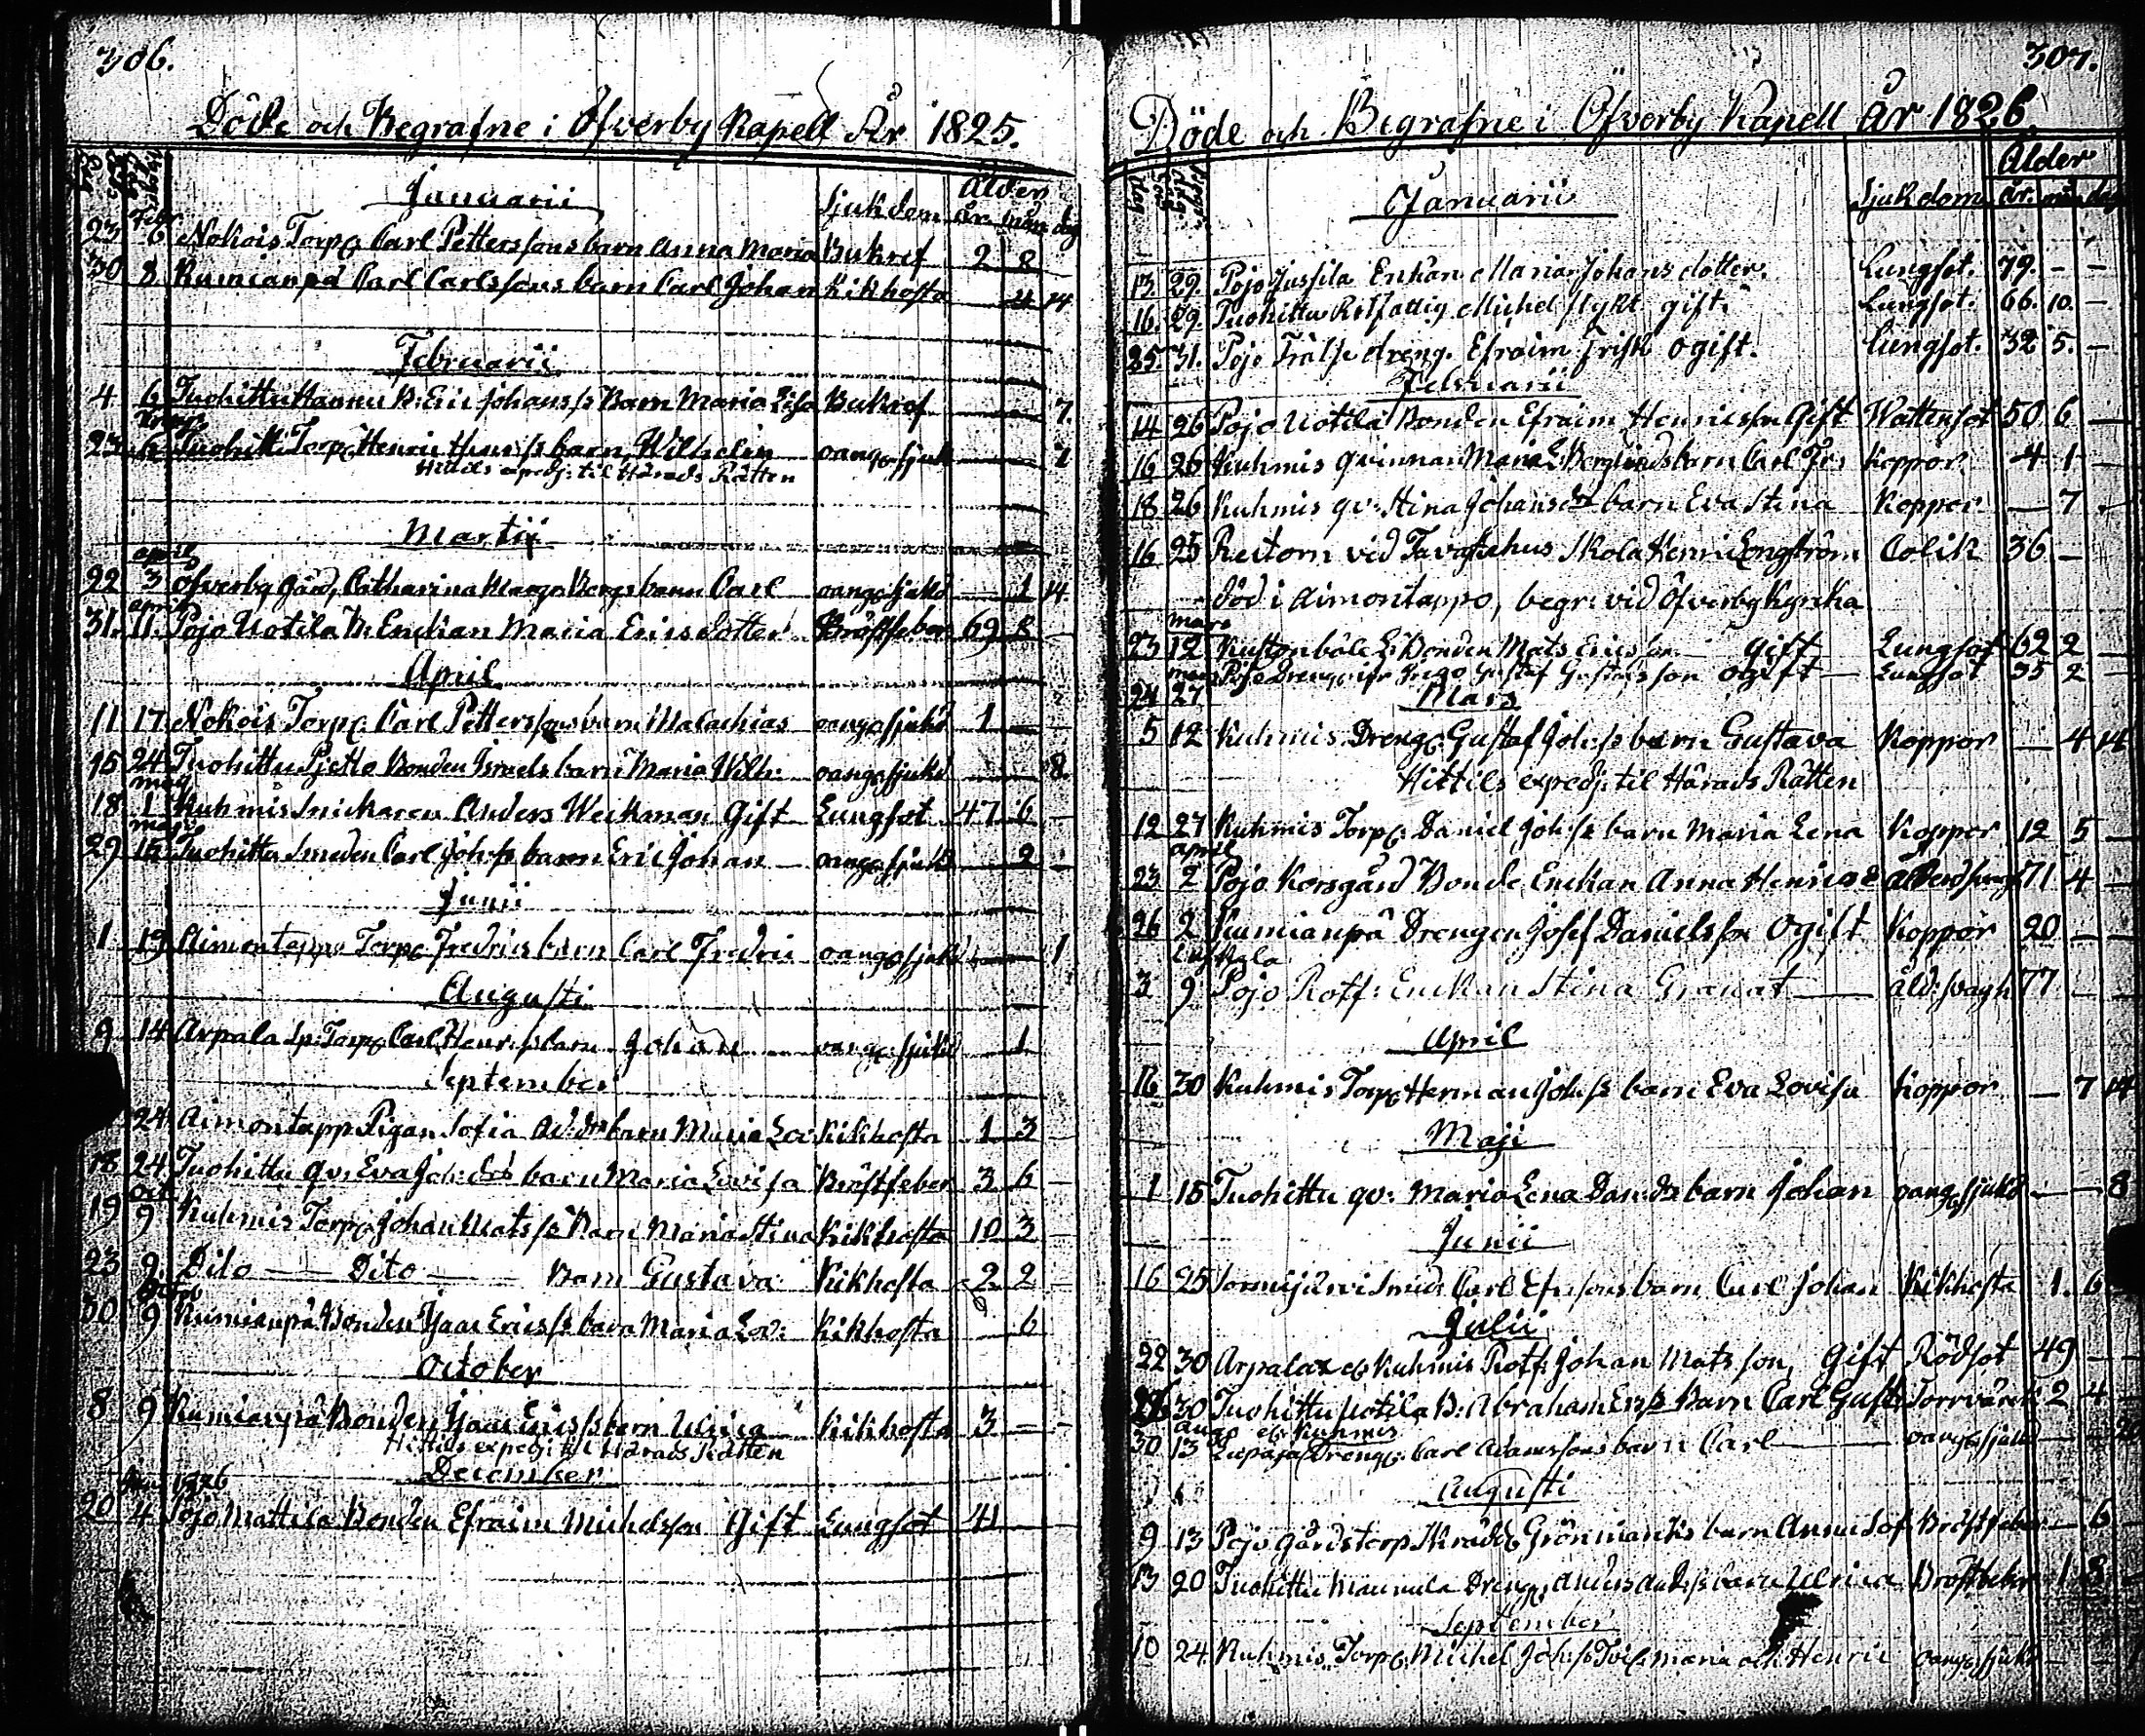 306.
Döde och Begrafne i Öfverby Kapell År 1825.
Januarii Sjukdom Ålder
år mån dag
Febr
23 6 Nokois Torp. Carl Petterssons barn Anna Maria Bukref 2 8
30 8 Kumianpä Carl Carlssons barn Carl Johan Kikhosta 4 14
Februarii
4 6 Tuohittu Hannu B: Eric Johanss Barn Maria Lisa Bukref 7.
23 6 Tuohittu Torp. Henric Henr:ss barn Wilhelm oang. sjuk
Hittils exped: til Härads Rätten
Martii
april
22 3 Öfverby Gård, Catharina barn Carl oang. sjukd 1 14
april
31. 11. Pojo Uotila B: Enckan Maria Ericsdotter Bröstfeber 69 8
April
11 17 Nokois Torp. Carl Petterssons barn Malachias oang. sjukd 1
15 24 Tuohittu Bonden Israels barn Maria Wilh: oang. sjukd 8.
maj
18 1 Kuhmis Snickaren Anders Weckman Gift Lungsot 47 6
maji
29 15 Tuohittu Smeden Carl Joh:ss barn Eric Johan oang. sjukd 2
Junii
1 19 Aimontappo Torp. Fredrics barn Carl Fredric oang. sjukd 1
Augusti
9 14 Arpala Sp: Torp. Carl Henr:ss barn Johan oang. sjukd 1
September
24 Aimontapp Pigan Sofia Ad:dr barn Maria Lov: Kikhosta 1 3
18 24 Tuohittu qv: Eva Joh:dr barn Maria Lovisa Bröstfeber 3 6
Oct
19 9 Kuhmis Torp. Johan Matss Barn Maria Stina Kikhosta 10 3
23 9 Dito — Dito — Barn Gustava Kikhosta 2 2
30 9 Kumianpä Bonden Isaac Ericss barn Maria Lov: Kikhosta 6
October
8 9 Kumianpä Bonden Isaac Ericss barn Ulrica Kikhosta 3 —
Hittils exped: til Härads Rätten
December
1826
20 4 Pojo Mattila Bonden Efraim Michelsson Gift Lungsot 41
307.
Döde och Begrafne i Öfverby Kapell År 1826.
Januarii Sjukdom Ålder
år. mån dag
13 29. Pojo Jussila Enkan Maria Johans dotter. Lungsot. 79. - -
16. 29. Tuohittu Rotfattig Michel Stykt gift. Lungsot. 66. 10. -
25. 31. Pojo Frälse dreng. Efraim Frisk ogift. Lungsot. 32 5. -
Februarii
14 26 Pojo Uotila Bonden Efraim Henricsson Gift Wattensot 50 6 —
16 26 Kuhmis Quinnan Maria L Berglinds barn Carl Fr: Koppor 4 1
18 26 Kuhmis qv: Stina Johansdr barn Eva Stina Koppor — 7
16 25 Rectorn vid Tavastehus Skola Henric Engström Colik 36 —
död i Aimontappo, begr: vid Öfverby Kyrka
mars
23 12 Bonden Mats Ericsson gift Lungsot 62 2
mars
24 27 Pojo Dreng. Gustaf Gustafsson ogift Lungsot 35 2
Mars
5 12 Kuhmis Dreng. Gustaf Joh:ss barn Gustava Koppor — 4 14
Hittils exped: til Härads Rätten
12 27 Kuhmis Torp. Daniel Joh:ss barn Maria Lena Koppor 12 5 —
april
23 2 Pojo Korsgård Bonde Enckan Anna Henricsd Ålderdsvagh 71 4 —
26 2 Kumianpä Drengen Josef Danielsson ogift Koppor 20 — —
3 9 Pojo Rotf: Enckan Stina Granat — åld: svagh 77
April
16 30 Kuhmis Torp. Herman Joh:ss barn Eva Lovisa Koppor — 7 14
Maji
1 15 Tuohittu qv: Maria Lena Dan:dr barn Johan oang. sjukd — — 8
Junii
16 25 Sormijärvi Smed Carl Efr:sons barn Carl Johan Kikhosta 1. 6
Julii
22 30 Arpala el. Kuhmis Rotf: Johan Matsson, Gift Rödsot 49 — —
30 Tuohittu Uotila B: Abraham Er:ss Barn Carl Gust: Torrvärk 2 4 —
aug el. Kuhmis
30 13 Dreng. Carl Adamssons barn Carl — oang. sjukd — 20
Augusti
9 13 Pojo gårds torp Skrädd. Grönmarks barn Anna Sof: Bröstfeber — 6
13 20 Tuohittu Maunula Dreng. Anders And:ss barn Ulrica Bröstfeber 1 8
September
10 24. Kuhmis Torp. Michel Joh:ss Tvil: Maria och Henric oang. sjukd — —